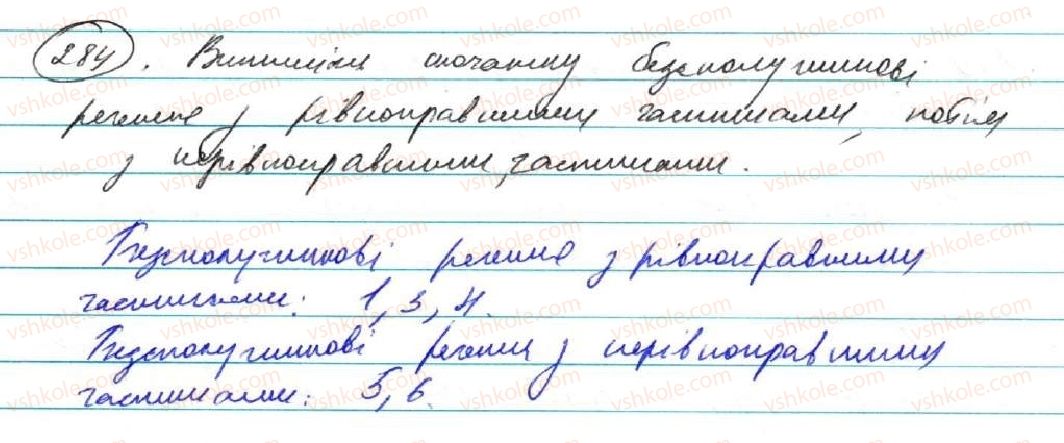 284. Випишіть спочатку безсполучникові
речення з рівноправними частинами, потім
з нерівноправними частинами.
Безсполучникові речення з рівноправними
частинами: 1, 3, 4.
Безсполучникові речення з нерівноправними
частинами: 5, 6.